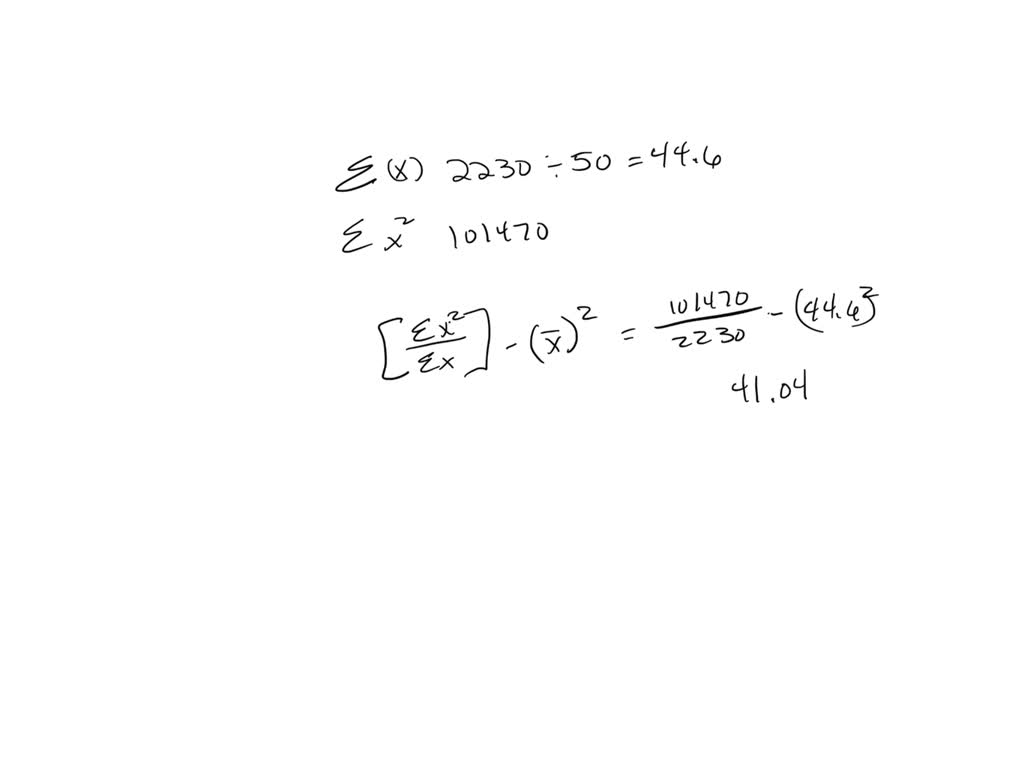 Σ(x) 2230 ÷ 50 = 44.6
Σx² 101470
[Σx²/Σx] - (x̄)² = 101470/2230 - (44.6)²
41.04